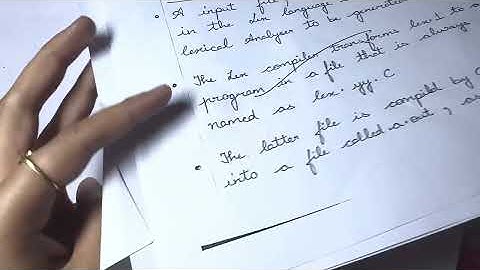 • A input file
in the Lex language
lexical Analyser to be generated
• The Lex compiler transforms lex.l to a
program in a file that is always
named as lex.yy.C
• The latter file is compild by C
into a file called a.out, as